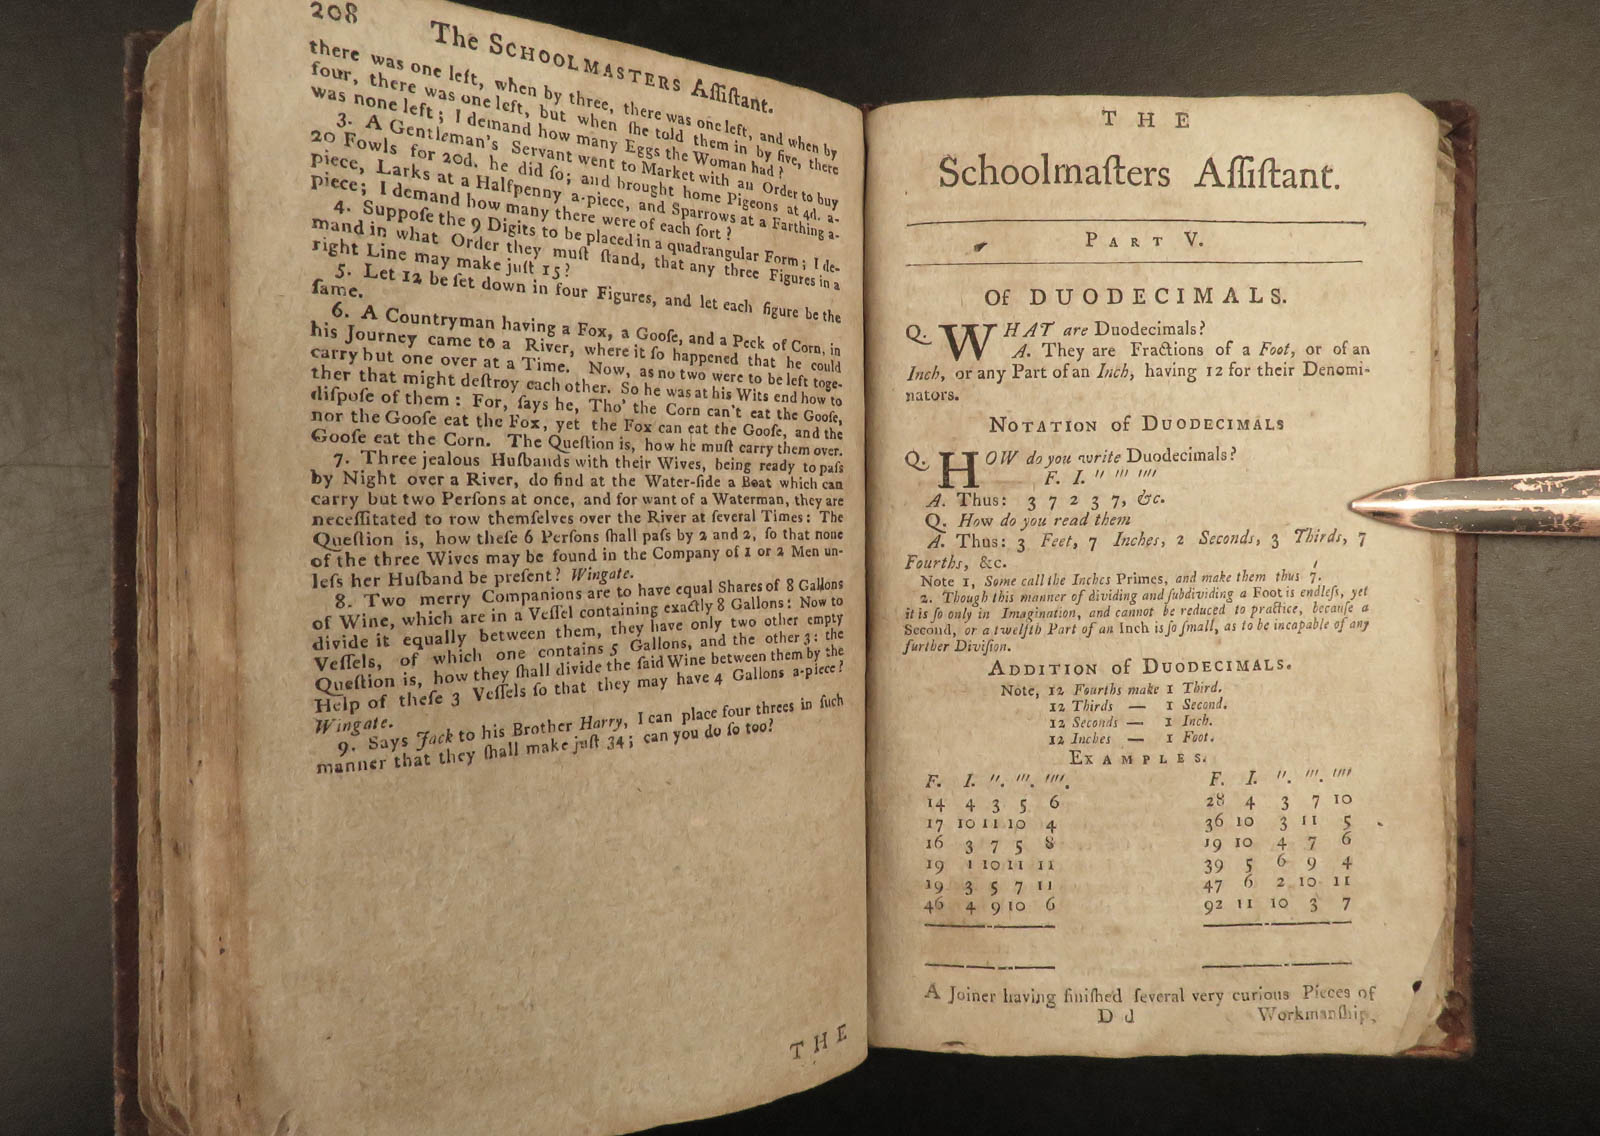 208
The SCHOOLMASTERS Aſſiſtant.
there was one left, when by three, there was one left, and when by
four, there was one left, but when ſhe told them in by five, there
was none left; I demand how many Eggs the Woman had?
3. A Gentleman's Servant went to Market with an Order to buy
20 Fowls for 20d. he did ſo; and brought home Pigeons at 4d. a-
piece, Larks at a Halfpenny a-piece, and Sparrows at a Farthing a-
piece; I demand how many there were of each ſort?
4. Suppoſe the 9 Digits to be placed in a quadrangular Form; I de-
mand in what Order they muſt ſtand, that any three Figures in a
right Line may make juſt 15?
5. Let 12 be ſet down in four Figures, and let each figure be the
ſame.
6. A Countryman having a Fox, a Gooſe, and a Peck of Corn, in
his Journey came to a River, where it ſo happened that he could
carry but one over at a Time. Now, as no two were to be left toge-
ther that might deſtroy each other. So he was at his Wits end how to
diſpoſe of them: For, ſays he, Tho' the Corn can't eat the Gooſe,
nor the Gooſe eat the Fox, yet the Fox can eat the Gooſe, and the
Gooſe eat the Corn. The Queſtion is, how he muſt carry them over.
7. Three jealous Huſbands with their Wives, being ready to paſs
by Night over a River, do find at the Water-ſide a Boat which can
carry but two Perſons at once, and for want of a Waterman, they are
neceſſitated to row themſelves over the River at ſeveral Times: The
Queſtion is, how theſe 6 Perſons ſhall paſs by 2 and 2, ſo that none
of the three Wives may be found in the Company of 1 or 2 Men un-
leſs her Huſband be preſent? Wingate.
8. Two merry Companions are to have equal Shares of 8 Gallons
of Wine, which are in a Veſſel containing exactly 8 Gallons: Now to
divide it equally between them, they have only two other empty
Veſſels, of which one contains 5 Gallons, and the other 3: the
Queſtion is, how they ſhall divide the ſaid Wine between them by the
Help of theſe 3 Veſſels ſo that they may have 4 Gallons a-piece?
Wingate.
9. Says Jack to his Brother Harry, I can place four threes in ſuch
manner that they ſhall make juſt 34; can you do ſo too?
THE
THE
Schoolmaſters Aſſiſtant.
PART V.
Of DUODECIMALS.
Q. WHAT are Duodecimals?
A. They are Fractions of a Foot, or of an
Inch, or any Part of an Inch, having 12 for their Denomi-
nators.
NOTATION of DUODECIMALS
Q. HOW do you write Duodecimals?
F. I. " ''' ''''
A. Thus: 3 7 2 3 7, &c.
Q. How do you read them
A. Thus: 3 Feet, 7 Inches, 2 Seconds, 3 Thirds, 7
Fourths, &c.
Note 1, Some call the Inches Primes, and make them thus 7.
2. Though this manner of dividing and ſubdividing a Foot is endleſs, yet
it is ſo only in Imagination, and cannot be reduced to practice, becauſe a
Second, or a twelfth Part of an Inch is ſo ſmall, as to be incapable of any
further Diviſion.
ADDITION of DUODECIMALS.
Note, 12 Fourths make 1 Third.
12 Thirds — 1 Second.
12 Seconds — 1 Inch.
12 Inches — 1 Foot.
EXAMPLES.
F. I. ''. '''. ''''. F. I. ''. '''. ''''
14 4 3 5 6 28 4 3 7 10
17 10 11 10 4 36 10 3 11 5
16 3 7 5 8 19 10 4 7 6
19 1 10 11 11 39 5 6 9 4
19 3 5 7 11 47 6 2 10 11
46 4 9 10 6 92 11 10 3 7
A Joiner having finiſhed ſeveral very curious Pieces of
D d Workmanſhip,